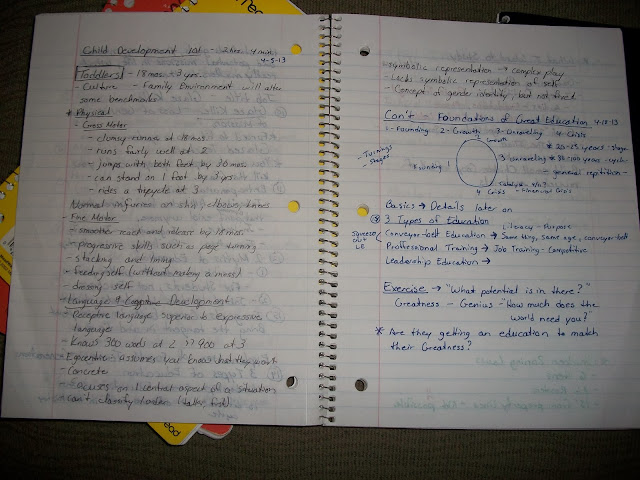 Child Development 101 - 2hr. 4 min.
4-5-13
Toddlers - 18 mos - 3 yrs.
- Culture - Family Environment will alter
some benchmarks
* Physical
- Gross Motor
- clumsy runner at 18 mos.
- runs fairly well at 2
- jumps with both feet by 30 mos.
- can stand on 1 foot by 3 yrs
- rides a tricycle at 3
Normal injuries on skin, elbows, knees
- Fine Motor
- smoother reach and release by 18 mos.
- progressive skills such as page turning
- stacking and lining
- feeding self (without making a mess)
- dressing self
- Language & Cognitive Development
- Receptive language superior to expressive
language
- knows 300 words at 2 900 at 3
- Egocentric - assumes you know what they want
- Concrete
- Focuses on 1 central aspect of a situation
- can't classify / order
- symbolic representation → complex play
- Lacks symbolic representation of self
- Concept of gender identity, but not fixed
Con't - Foundations of Great Education 4-18-13
1- Founding 2- Growth 3- Unraveling 4- Crisis
Growth
* 20-25 years - stage
- Turnings
- stages
Founding 1
3 Unraveling
* 80-100 years - cycle
- general repetition -
Catalyst - 9/11
4 Crisis - Financial Crisis
Basics → Details later on
3 Types of Education
Literacy - Purpose
Squeeze out LE
Conveyor-belt Education → Same thing, same age, conveyor-belt
Proffessional Training → Job Training - Competitive
Leadership Education →
Exercise → "What potential is in there?"
Greatness - Genius - "How much does the
World need you?"
* Are they getting an education to match
their Greatness?